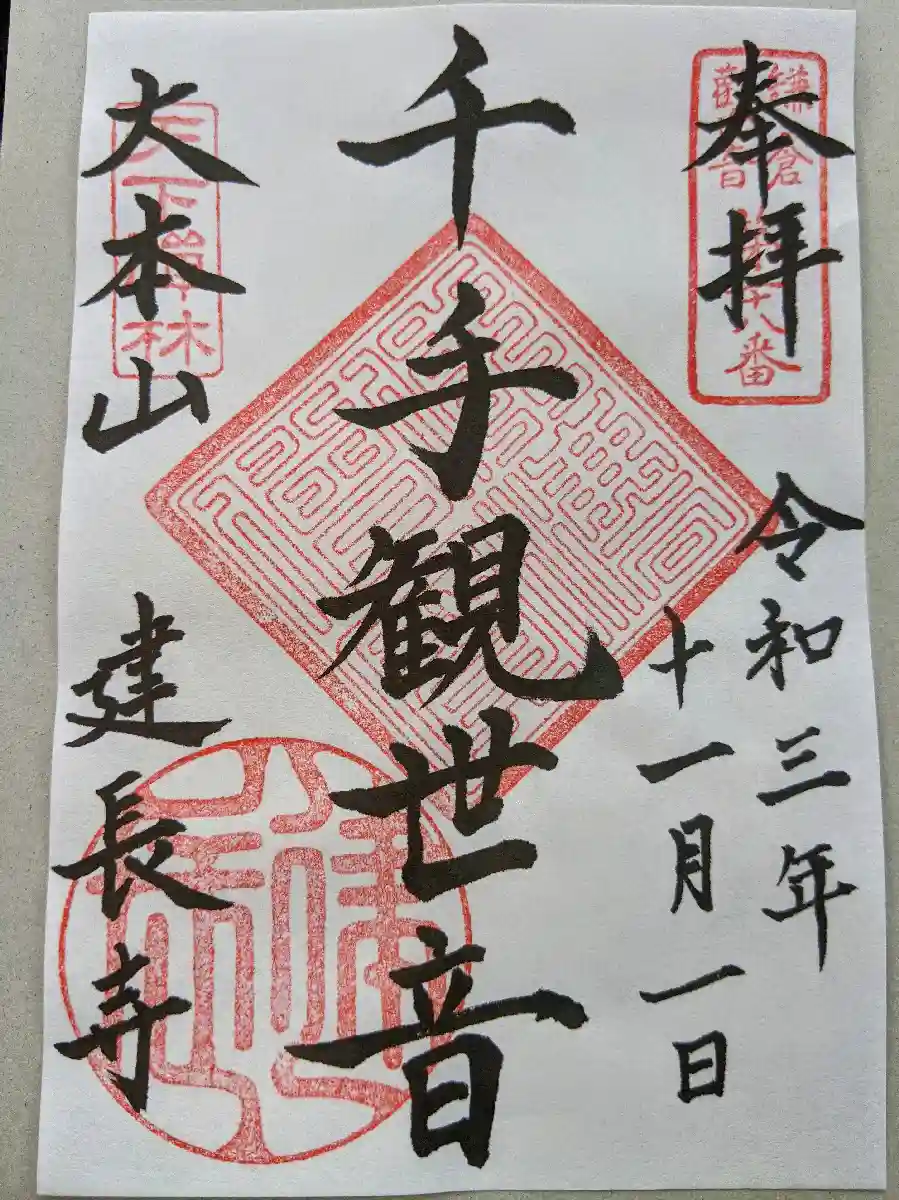 奉拝
鎌倉
観音
第二十八番
令和三年
十一月一日
千手観世音
大本山 建長寺
天下禅林